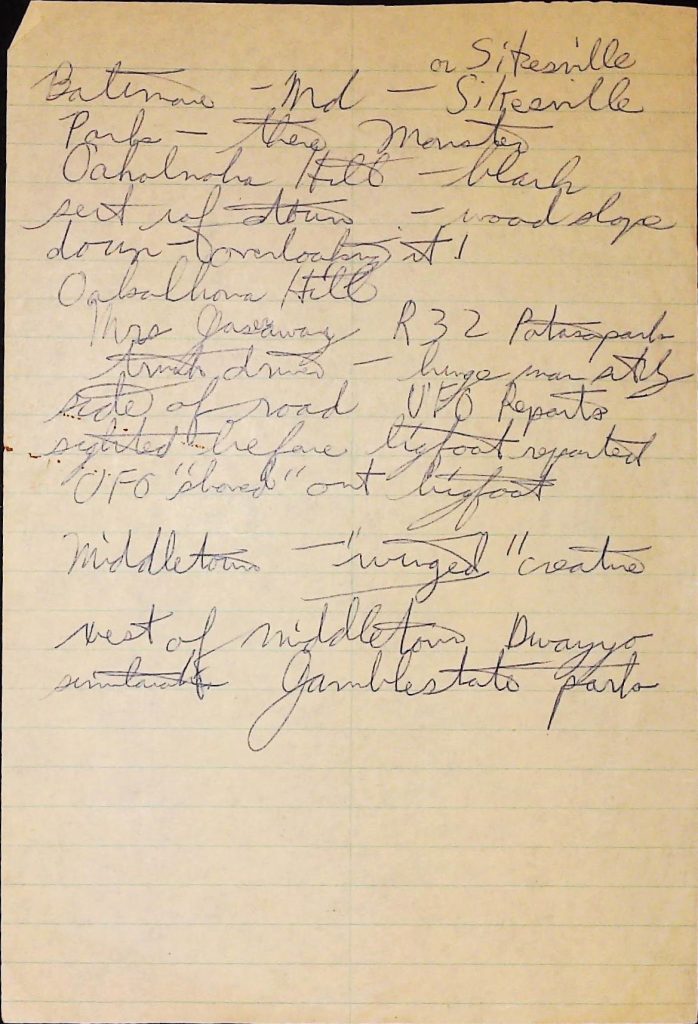 or Sikesville
Batimore - Md - Sikesville
Parks - there Monster
Oakalnoha Hill - black
sect of town - wood slope
down - overlooking it!
Oakalhona Hill
Mrs Gassaway R 32 Patasapark
truck driver - huge man at
side of road UFO Reports
sighted before bigfoot reported
UFO "shoved" out bigfoot
Middletown - "winged" creature
west of middletown Dwayyo
Gamblestate park